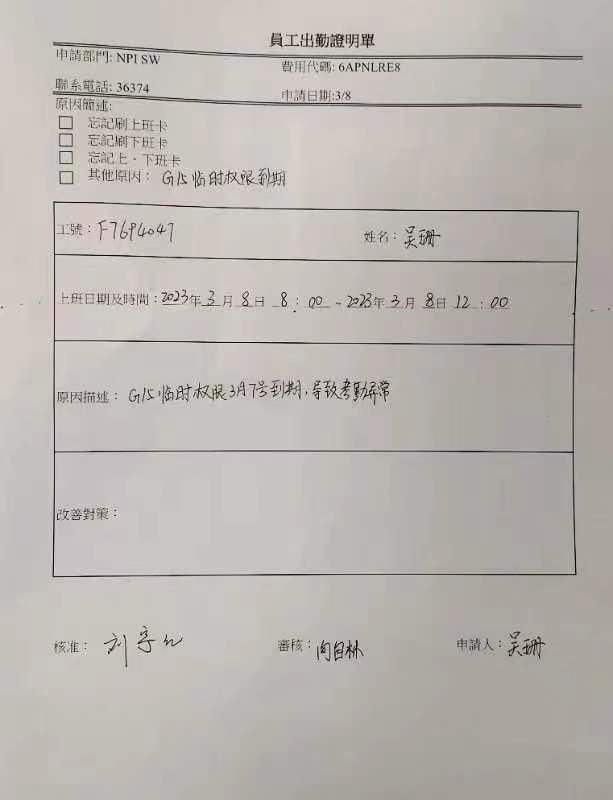 員工出勤證明單
申請部門: NPI SW 費用代碼: 6APNLRE8
聯系電話: 36374 申請日期:3/8
原因簡述:
□ 忘記刷上班卡
□ 忘記刷下班卡
□ 忘記上、下班卡
□ 其他原因： G15临时权限到期
工號：F7694047 姓名：吴珊
上班日期及時間：2023年3月8日8：00～2023年3月8日12：00
原因描述： G15临时权限3月7号到期，导致考勤异常
改善對策：
核准： 刘 審核：向自林 申請人：吴珊